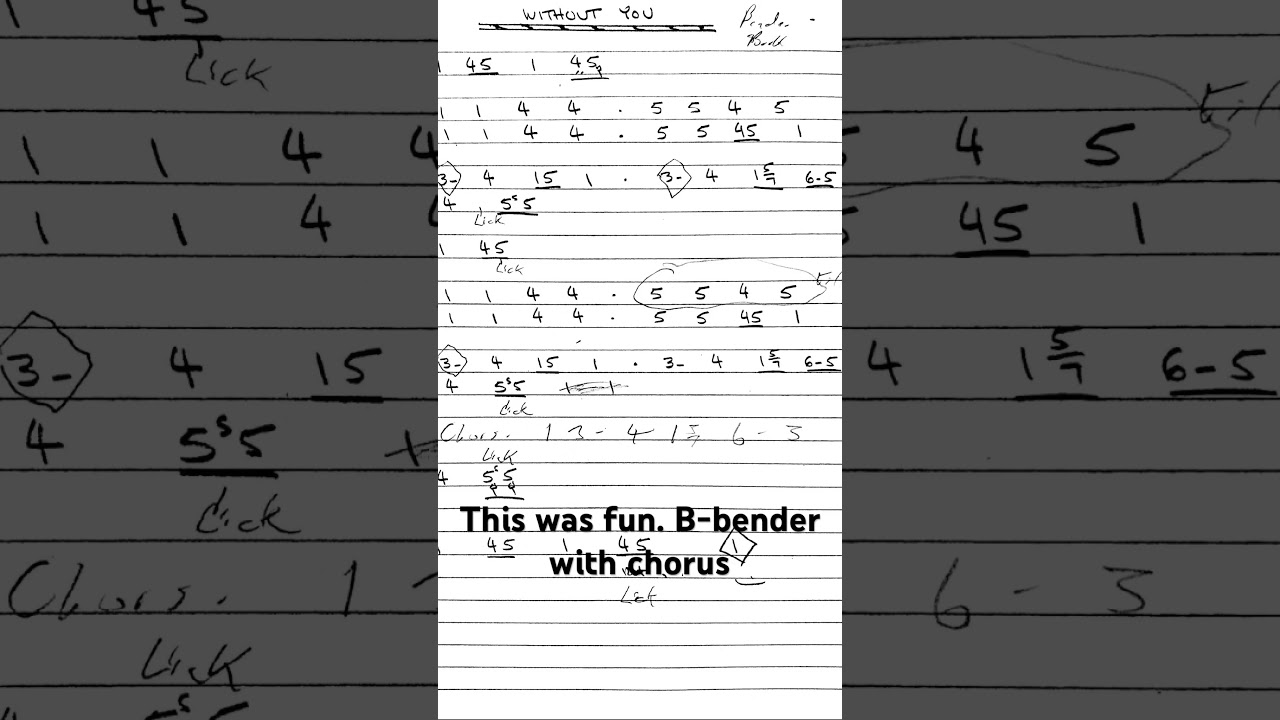 WITHOUT YOU
1 45 1 45
1 1 4 4 . 5 5 4 5
1 1 4 4 . 5 5 45 1
3- 4 15 1 . 3- 4 1 5/7 6-5
4 5 5 5
Lick
1 45
Lick
1 1 4 4 . 5 5 4 5
1 1 4 4 . 5 5 45 1
3- 4 15 1 . 3- 4 1 5/7 6-5
4 5 5 5
Lick
Chors. 1 3- 4 1 5/7 6-3
Lick
4 5 5 5
This was fun. B-bender
45 1 45 1
with chorus
Lick